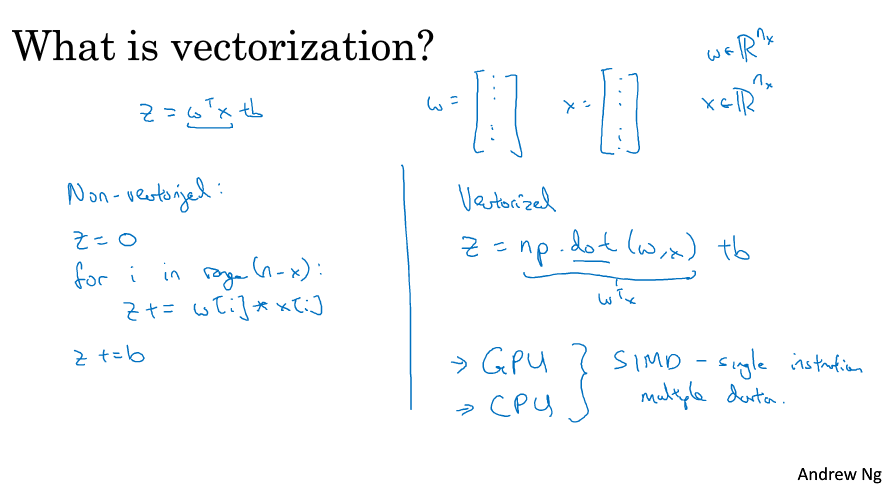 What is vectorization?
z = wᵀx + b
w = [⋮] x = [⋮] w ∈ ℝⁿˣ
x ∈ ℝⁿˣ
Non-vectorized:
z = 0
for i in range(n-x):
z += w[i] * x[i]
z += b
Vectorized
z = np.dot(w,x) + b
wᵀx
→ GPU } SIMD - single instruction
→ CPU } multiple data.
Andrew Ng